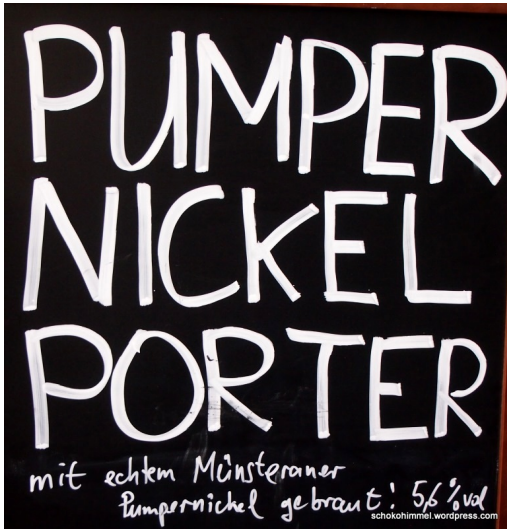 PUMPER
NICKEL
PORTER
mit echtem Münsteraner
Pumpernickel gebraut! 5,6 % vol
schokohimmel.wordpress.com